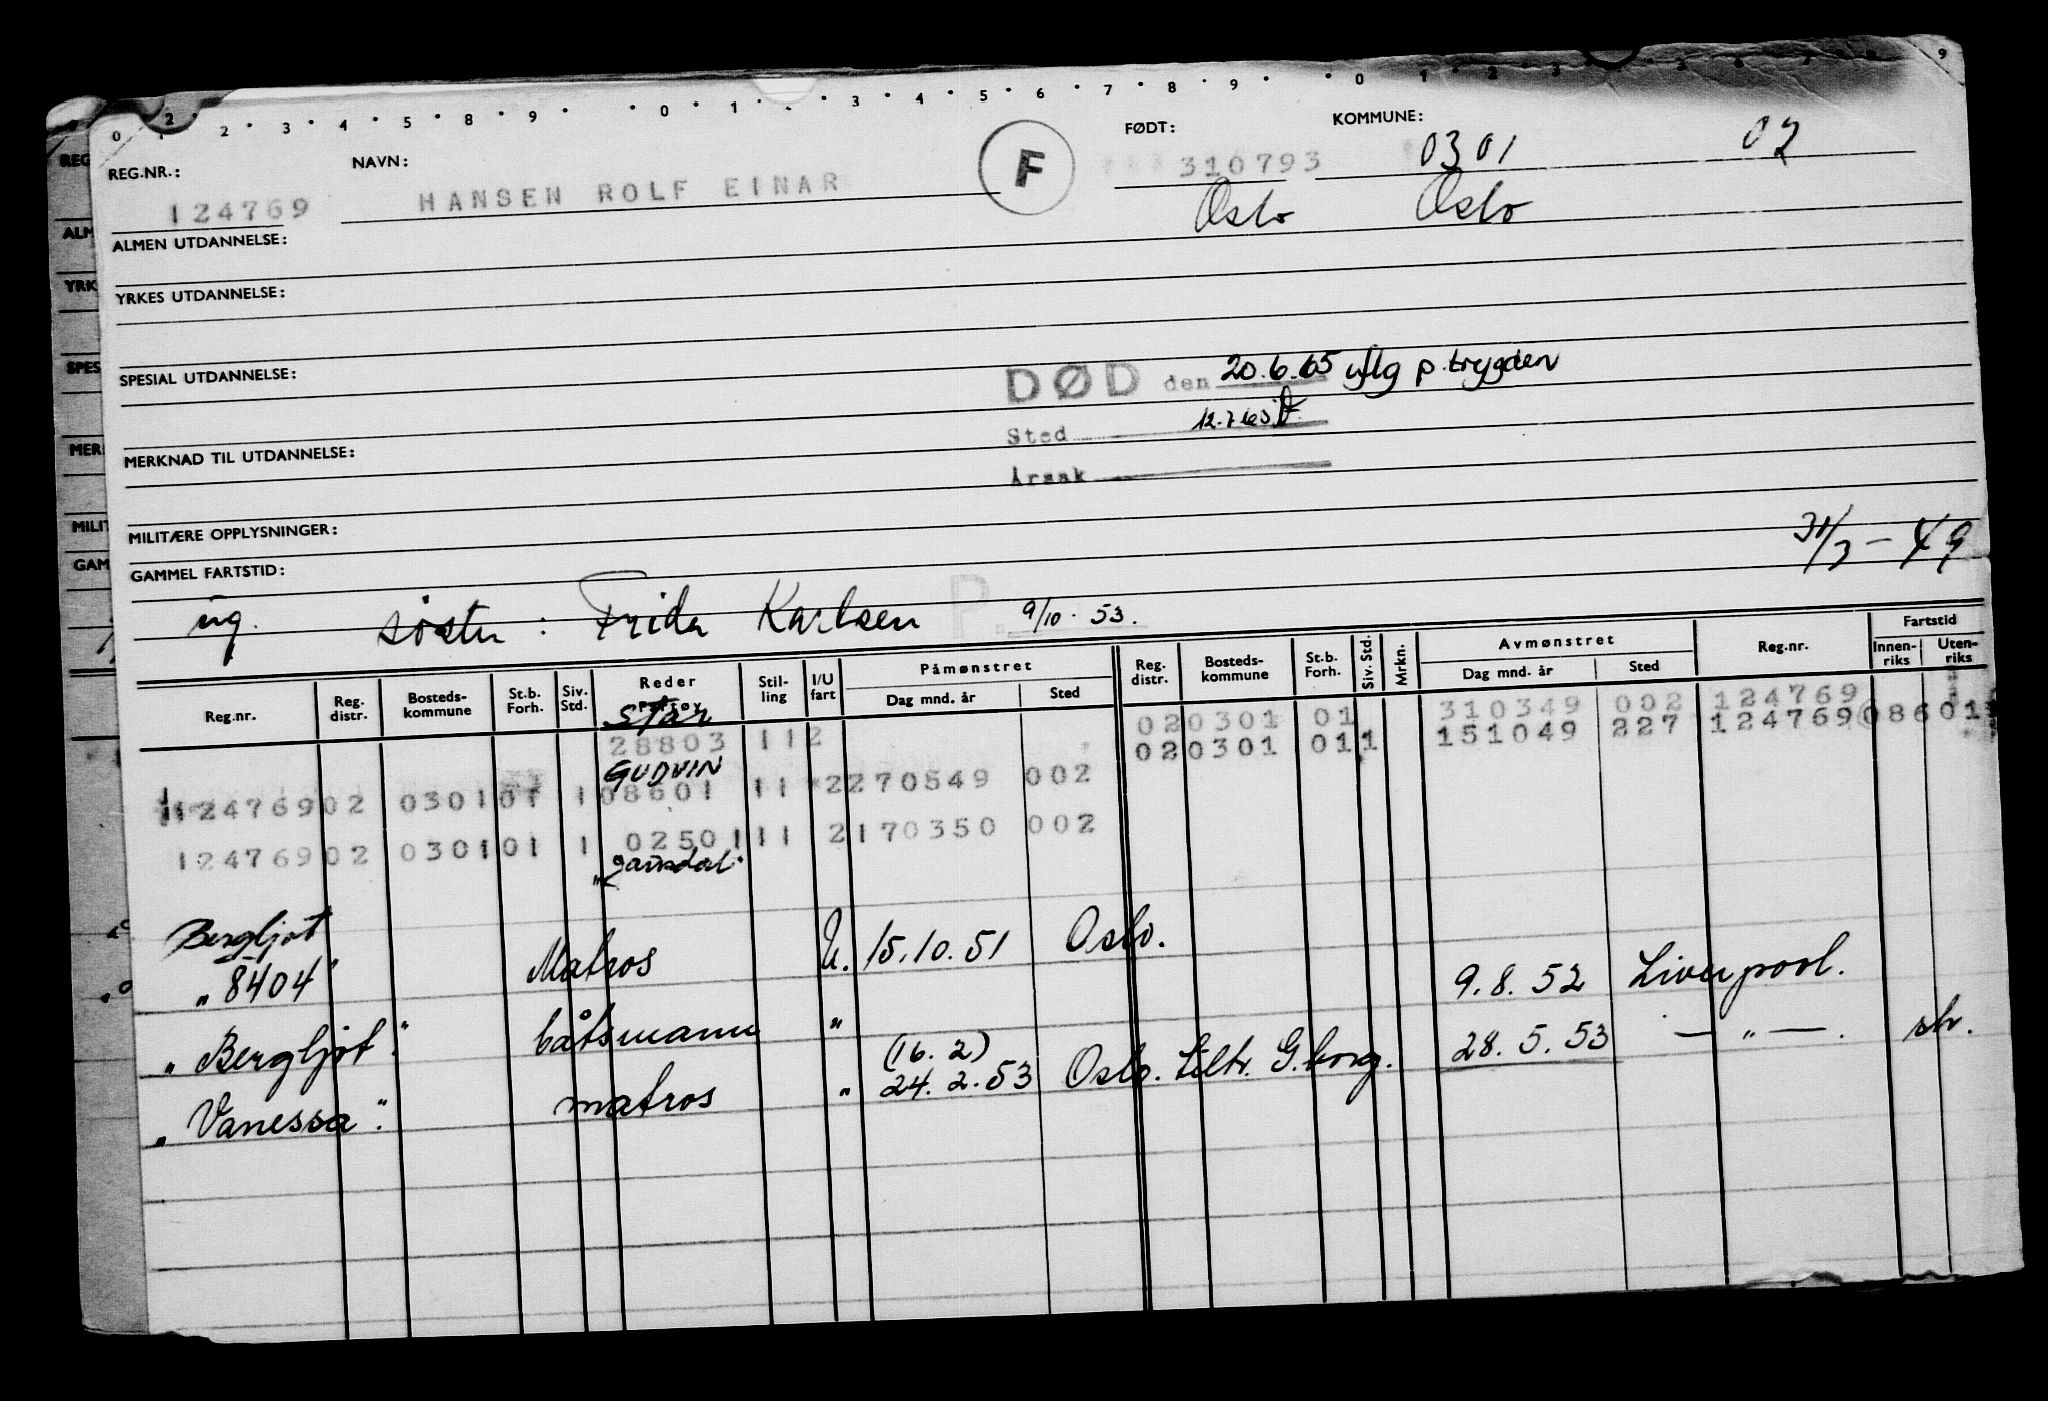 0 1 2 3 4 5 6 7 8 9 0 1 2 3 4 5 6 7 8 9 0 1 2 3 5 6 7 8 9
REG.NR.: NAVN: F FØDT: KOMMUNE:
124769 HANSEN ROLF EINAR 310793 0301 02
Oslo Oslo
ALMEN UTDANNELSE:
YRKES UTDANNELSE:
SPESIAL UTDANNELSE:
DØD den 20.6.65 iflg p.trygden
Sted 12.7.65
MERKNAD TIL UTDANNELSE:
Årsak
MILITÆRE OPPLYSNINGER:
31/3 - 49
GAMMEL FARTSTID:
ug. søster: Frida Karlsen P. 9/10. 53.
Reg.nr. Reg. distr. Bosteds-kommune St.b. Forh. Siv. Std. Reder Fartøy Stil-ling I/U fart Påmønstret Dag mnd. år Sted Reg. distr. Bosteds-kommune St.b. Forh. Siv. Std. Mrkn. Avmønstret Dag mnd. år Sted Reg.nr. Fartstid Innen-riks Uten-riks
Star
28803 112 020301 01 310349 002 124769
GUDVIN 020301 011 151049 227 124769 08601
12476902 030101 1 08601 11 2270549 002
12476902 030101 1 02501 11 2170350 002
"Garisdal"
Bergljot
"8404" Matros U. 15.10.51 Oslo.
9.8.52 Liverpool.
"Bergljot". båtsmann "
(16.2) 28.5.53 — " —. str.
"Vanessa". matros " 24.2.53 Oslo. tiltr. G.borg.